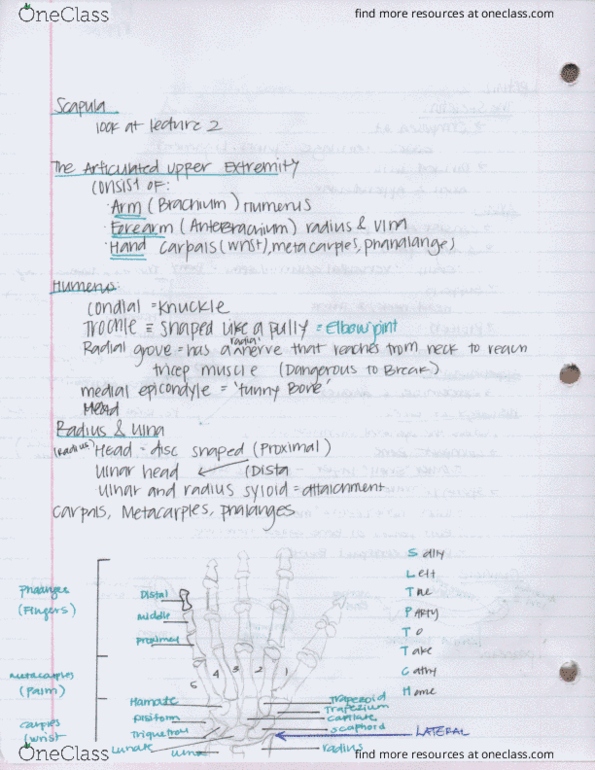 OneClass
find more resources at oneclass.com
Scapula
look at lecture 2
The Articulated Upper Extremity
consist of:
· Arm (Brachium) Humerus
· Forearm (Antebrachium) radius & ulna
· Hand carpals (wrist), metacarples, phanalanges
Humerus:
condial = knuckle
Trochle = shaped like a pully = Elbow joint
Radial grove = has a radial nerve that reaches from neck to reach
tricep muscle (Dangerous to Break)
medial epicondyle = 'funny Bone'
Head
Radius & Ulna
(Radius) Head = disc shaped (Proximal)
Ulnar head (Dista
Ulnar and radius syloid = attachment
Carpals, Metacarples, phalanges
Phalanges
(Fingers)
metacarples
(Palm)
carples
(wrist
Distal
middle
proximal
5 4 3 2 1
Hamate
Pisiform
Triquetrou
Lunate
ulna
Trapezoid
Trapezium
capitate
scaphoid
LATERAL
radius
Sally
Left
The
PARTY
To
Take
Cathy
Home
OneClass
find more resources at oneclass.com